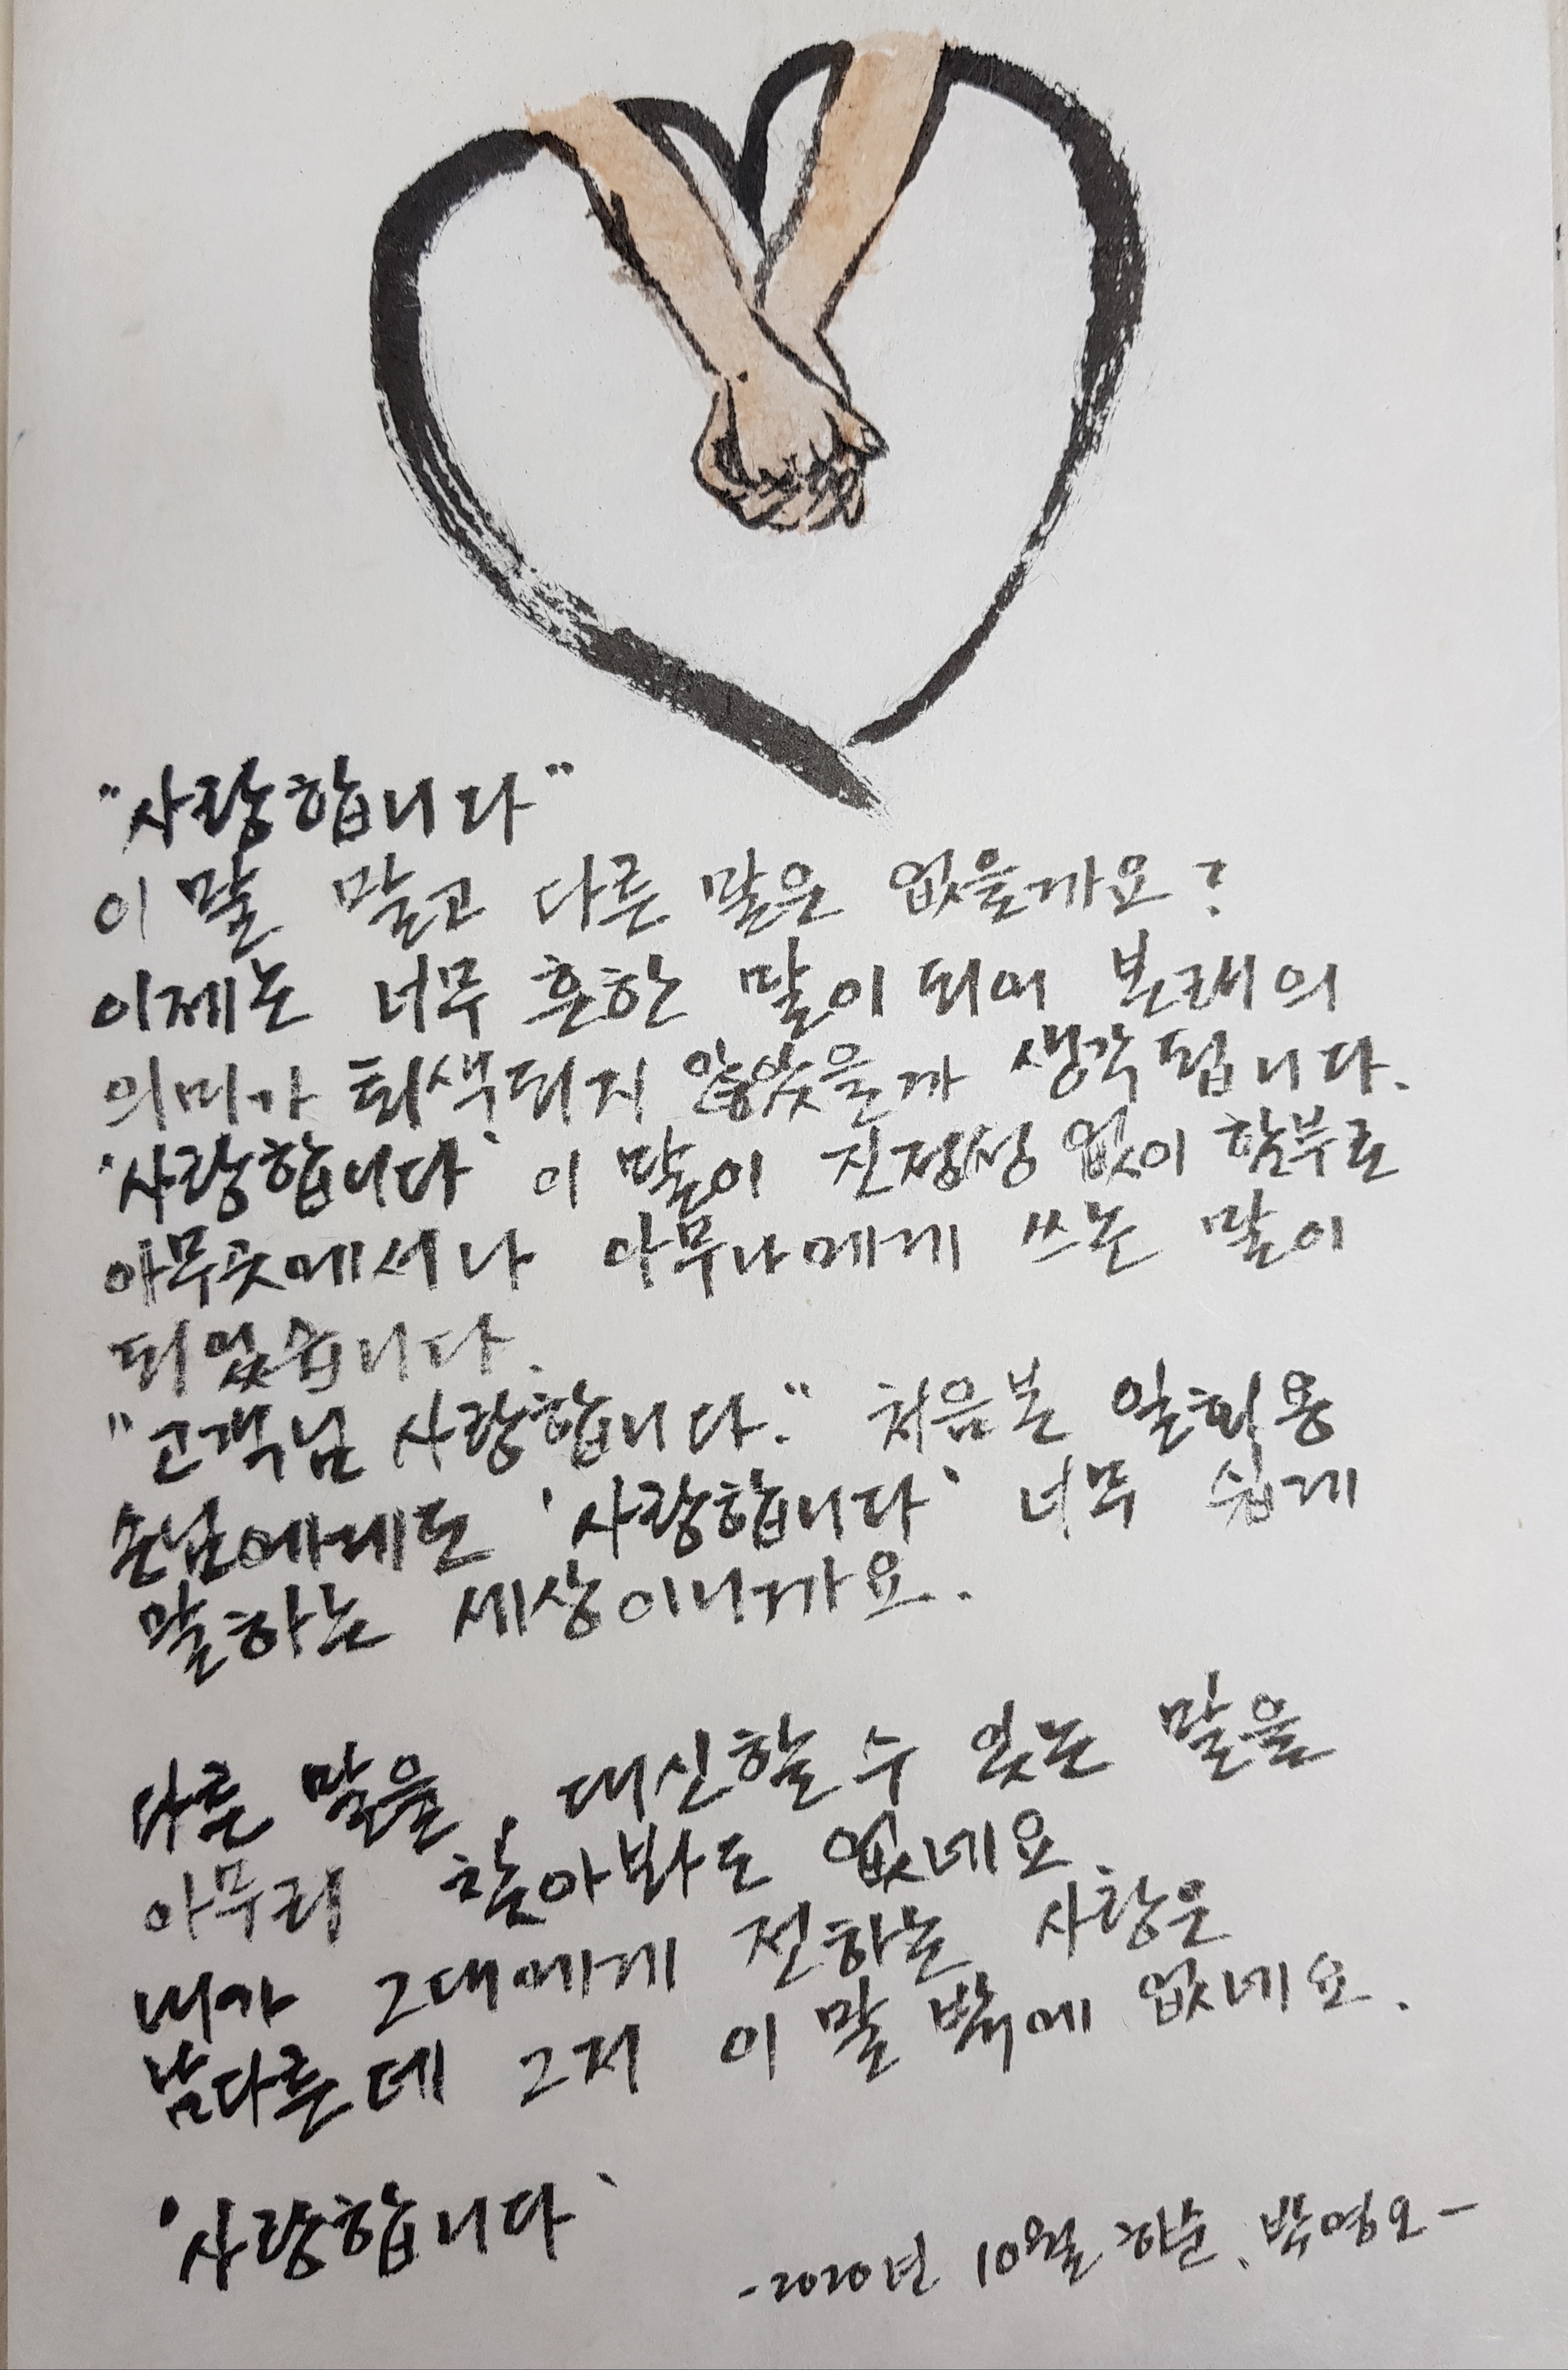 "사랑합니다"
이 말 말고 다른 말은 없을까요?
이제는 너무 흔한 말이 되어 본래의
의미가 퇴색되지 않았을까 생각됩니다.
'사랑합니다' 이 말이 진정성 없이 함부로
아무곳에서나 아무나에게 쓰는 말이
되었습니다.
"고객님 사랑합니다." 처음본 일회용
손님에게도 '사랑합니다' 너무 쉽게
말하는 세상이니까요.
다른 말을, 대신할 수 있는 말을
아무리 찾아봐도 없네요
내가 그대에게 전하는 사랑은
남다른데 그저 이 말 밖에 없네요.
'사랑합니다'
-2020년 10월 하순, 박영오-